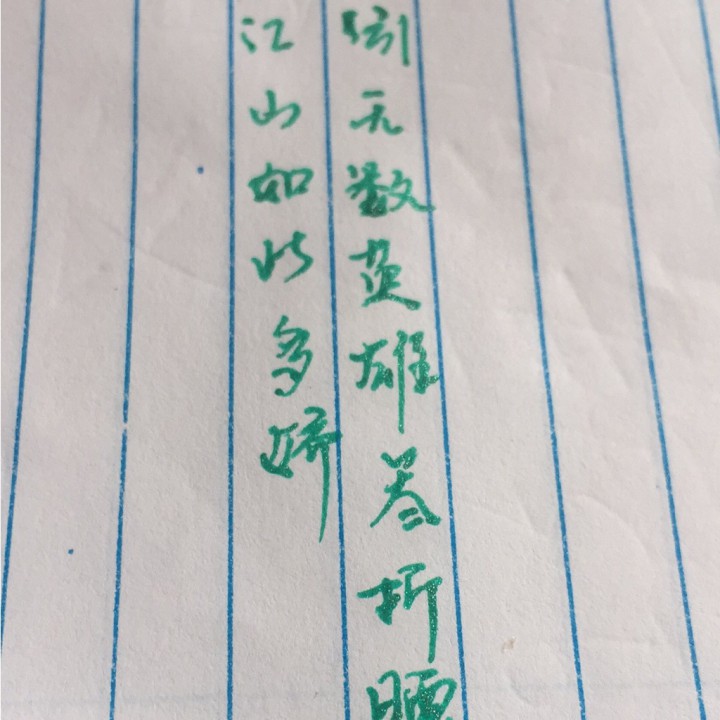 江山如此多娇
引无数英雄折腰